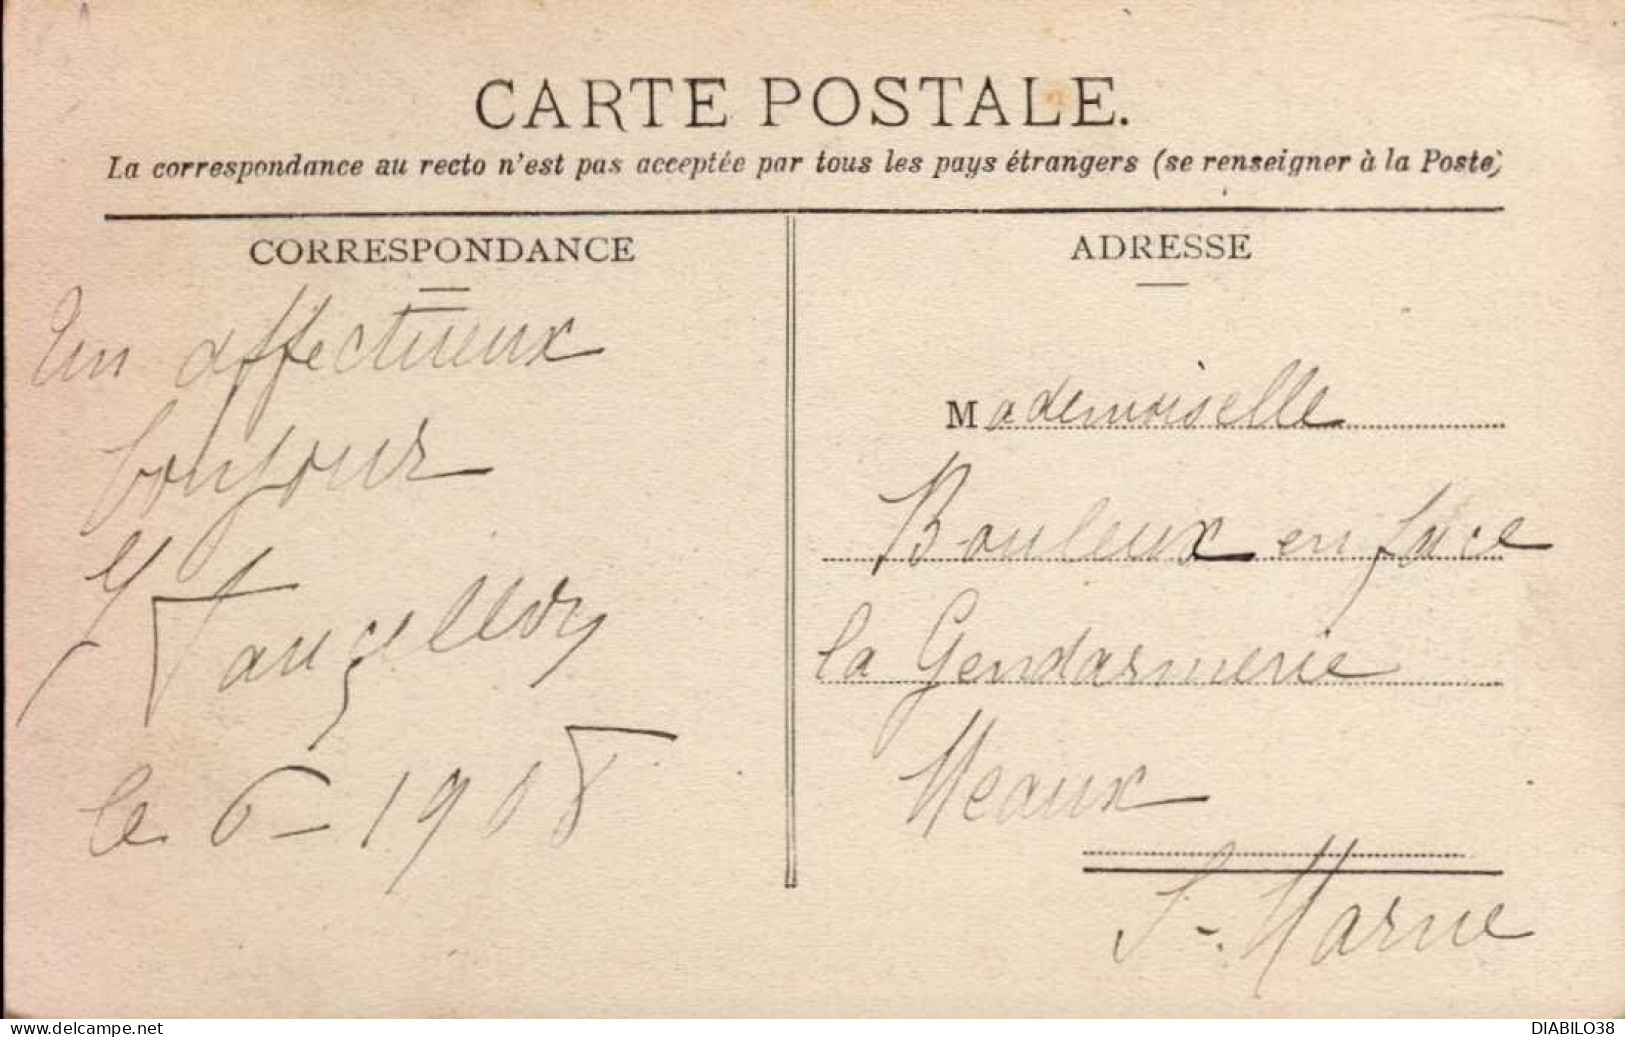 CARTE POSTALE.
La correspondance au recto n'est pas acceptée par tous les pays étrangers (se renseigner à la Poste)
CORRESPONDANCE
Un affectueux
bonjour
le 6-1908
ADRESSE
Mademoiselle
Bouleux en face
la Gendarmerie
Meaux
S-Marne
www.delcampe.net
DIABILO38